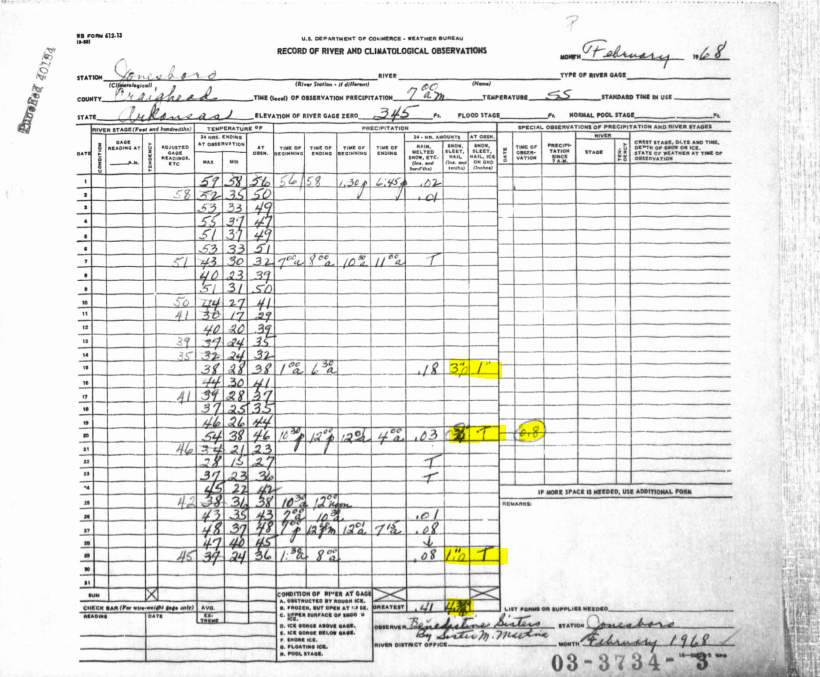 WB FORM 612-13
U.S. DEPARTMENT OF COMMERCE - WEATHER BUREAU
RECORD OF RIVER AND CLIMATOLOGICAL OBSERVATIONS
MONTH February 1968
Punched 40184
STATION Jonesboro RIVER TYPE OF RIVER GAGE
(Climatological) (River Station - if different) (Name)
COUNTY Craighead TIME (local) OF OBSERVATION PRECIPITATION 7 00 am TEMPERATURE 55 STANDARD TIME IN USE
STATE Arkansas ELEVATION OF RIVER GAGE ZERO 345 Ft. FLOOD STAGE Ft. NORMAL POOL STAGE Ft.
RIVER STAGE (Feet and hundredths) TEMPERATURE OF PRECIPITATION SPECIAL OBSERVATIONS OF PRECIPITATION AND RIVER STAGES
24 HRS. ENDING AT OBSERVATION 24 - HR. AMOUNTS AT OBSN. RIVER
DATE CONDITION GAGE READING AT A.M. TENDENCY ADJUSTED GAGE READINGS, ETC MAX MIN AT OBSN. TIME OF BEGINNING TIME OF ENDING TIME OF BEGINNING TIME OF ENDING RAIN, MELTED SNOW, ETC. (Ins. and hundredths) SNOW, SLEET, HAIL (Ins. and tenths) SNOW, SLEET, HAIL, ICE ON GND (Inches) DATE TIME OF OBSERVATION PRECIPITATION SINCE 7 A.M. STAGE TENDENCY CREST STAGE, DATE AND TIME, DEPTH OF SNOW OR ICE, STATE OF WEATHER AT TIME OF OBSERVATION
1 59 58 56 56 58 1:30p 6:45p .02
2 58 52 35 50 .01
3 53 33 49
4 55 37 47
5 51 37 49
6 53 33 51
7 51 43 30 32 7 00 a 8 00 a 10 30 a 11 00 a T
8 40 23 39
9 51 31 50
10 50 44 27 41
11 41 30 17 29
12 40 20 39
13 39 37 24 35
14 35 32 24 32
15 38 28 38 1 00 a 6 30 a .18 3" 1"
16 44 30 41
17 41 39 28 37
18 37 25 35
19 46 26 44
20 54 38 46 10 30 p 12 00 p 12 01 a 4 00 a .03 T 0.8
21 46 34 21 23
22 28 15 27 T
23 37 23 36 T
24 45 22 42
25 42 38 31 38 10 30 a 12 00 noon
26 43 35 43 7 00 a 10 30 a .01
27 48 37 48 7 00 p 12 00 pm 12 01 a 7 15 a .08
28 47 40 45
29 45 37 24 36 1:30 a 8 00 a .08 1" T
30
31
IF MORE SPACE IS NEEDED, USE ADDITIONAL FORM
REMARKS:
SUM
CHECK BAR (For wire-weight gage only) AVG.
READING DATE EXTREME
CONDITION OF RIVER AT GAGE
A. OBSTRUCTED BY ROUGH ICE.
B. FROZEN, BUT OPEN AT GAGE.
C. UPPER SURFACE OF SMOOTH ICE.
D. ICE GORGE ABOVE GAGE.
E. ICE GORGE BELOW GAGE.
F. SHORE ICE.
G. FLOATING ICE.
H. POOL STAGE.
GREATEST .41
LIST FORMS OR SUPPLIES NEEDED
OBSERVER Benedictine Sisters STATION Jonesboro
By Sister M.
RIVER DISTRICT OFFICE MONTH February 1968
03-3734- 3